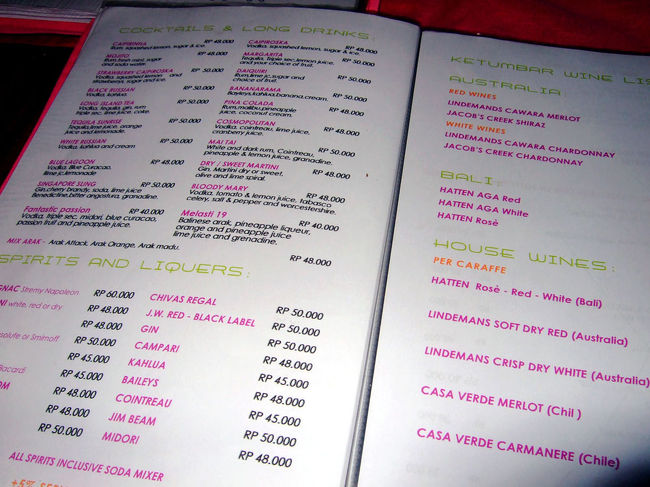 COCKTAILS & LONG DRINKS:
CAIPIRINIA RP 48.000
Rum, squashed lemon, sugar & ice.
MOJITO RP 48.000
Rum, fresh mint, sugar
and soda water.
STRAWBERRY CAIPIROSKA RP 50.000
Vodka, squashed lemon and
strawberrys, sugar and ice.
BLACK RUSSIAN RP 50.000
Vodka, kahlua.
LONG ISLAND TEA RP 50.000
Vodka, tequila, gin, rum
triple sec, lime juice, coke.
TEQUILA SUNRISE RP 50.000
Tequila, lime juice, orange
juice and lemonade.
WHITE RUSSIAN RP 48.000
Vodka, kahlua and cream
BLUE LAGOON RP 48.000
Vodka, Blue Curacao,
lime jc, lemonade
SINGAPORE SLING RP 50.000
Gin, cherry brandy, soda, lime juice
Benedictine, bitter angostura, granadine.
Fantastic passion RP 40.000
Vodka, triple sec, midori, blue curacao,
passion fruit and pineapple juice.
MIX ARAK - Arak Attack, Arak Orange, Arak madu.
CAIPIROSKA RP 48.000
Vodka, squashed lemon, sugar & ice.
MARGARITA RP 48.000
Tequila, triple sec, lemon juice,
and your choice of fruit.
DAIQUIRI RP 50.000
Rum, lime jc, sugar and
choice of fruit.
BANANARAMA RP 50.000
Bayleys, kahlua, banana, cream.
PINA COLADA RP 48.000
Rum, malibu, pineapple
juice, coconut cream.
COSMOPOLITAN RP 48.000
Vodka, cointreau, lime juice,
cranberry juice.
MAI TAI RP 50.000
White and dark rum, Cointreau,
pineapple & lemon juice, granadine.
DRY / SWEET MARTINI RP 48.000
Gin, Martini dry or sweet,
olive and lime spiral.
BLOODY MARY RP 48.000
Vodka, tomato & lemon juice, tabasco
celery, salt & pepper and worcestershire.
Melasti 19 RP 40.000
Balinese arak, pineapple liqueur,
orange and pineapple juice
lime juice and grenadine.
RP 48.000
SPIRITS AND LIQUERS:
GNAC Stremy Napoleon RP 60.000
NI white, red or dry RP 48.000
RP 48.000
solute or Smirnoff RP 50.000
RP 45.000
Bacardi RP 45.000
OM RP 48.000
RP 48.000
RP 50.000
CHIVAS REGAL RP 50.000
J.W. RED - BLACK LABEL RP 50.000
GIN RP 50.000
CAMPARI RP 48.000
KAHLUA RP 45.000
BAILEYS RP 48.000
COINTREAU RP 45.000
JIM BEAM RP 50.000
MIDORI RP 48.000
ALL SPIRITS INCLUSIVE SODA MIXER
KETUMBAR WINE LIS
AUSTRALIA:
RED WINES
LINDEMANDS CAWARA MERLOT
JACOB'S CREEK SHIRAZ
WHITE WINES
LINDEMANDS CAWARA CHARDONNAY
JACOB'S CREEK CHARDONNAY
BALI:
HATTEN AGA Red
HATTEN AGA White
HATTEN Rosé
HOUSE WINES:
PER CARAFFE
HATTEN Rosé - Red - White (Bali)
LINDEMANS SOFT DRY RED (Australia)
LINDEMANS CRISP DRY WHITE (Australia)
CASA VERDE MERLOT (Chil )
CASA VERDE CARMANERE (Chile)